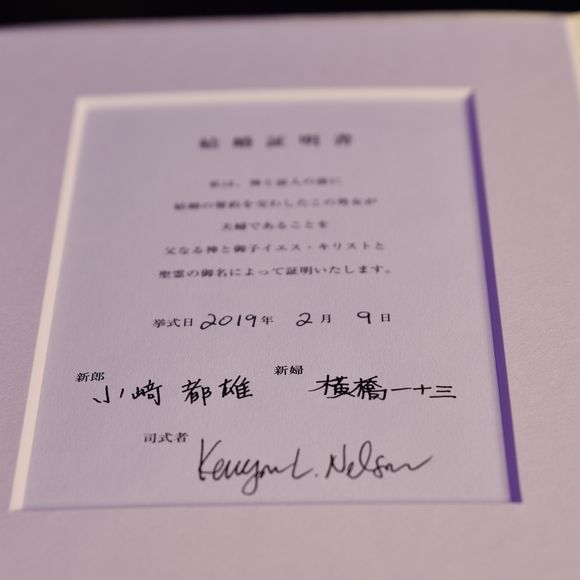 結婚証明書
私は、神と証人の前に
結婚の誓約を交わしたこの男女が
夫婦であることを
父なる神と御子イエス・キリストと
聖霊の御名によって証明いたします。
挙式日 2019年 2月 9日
新郎 小﨑 都雄 新婦 横橋一十三
司式者 Kenyon L. Nelson